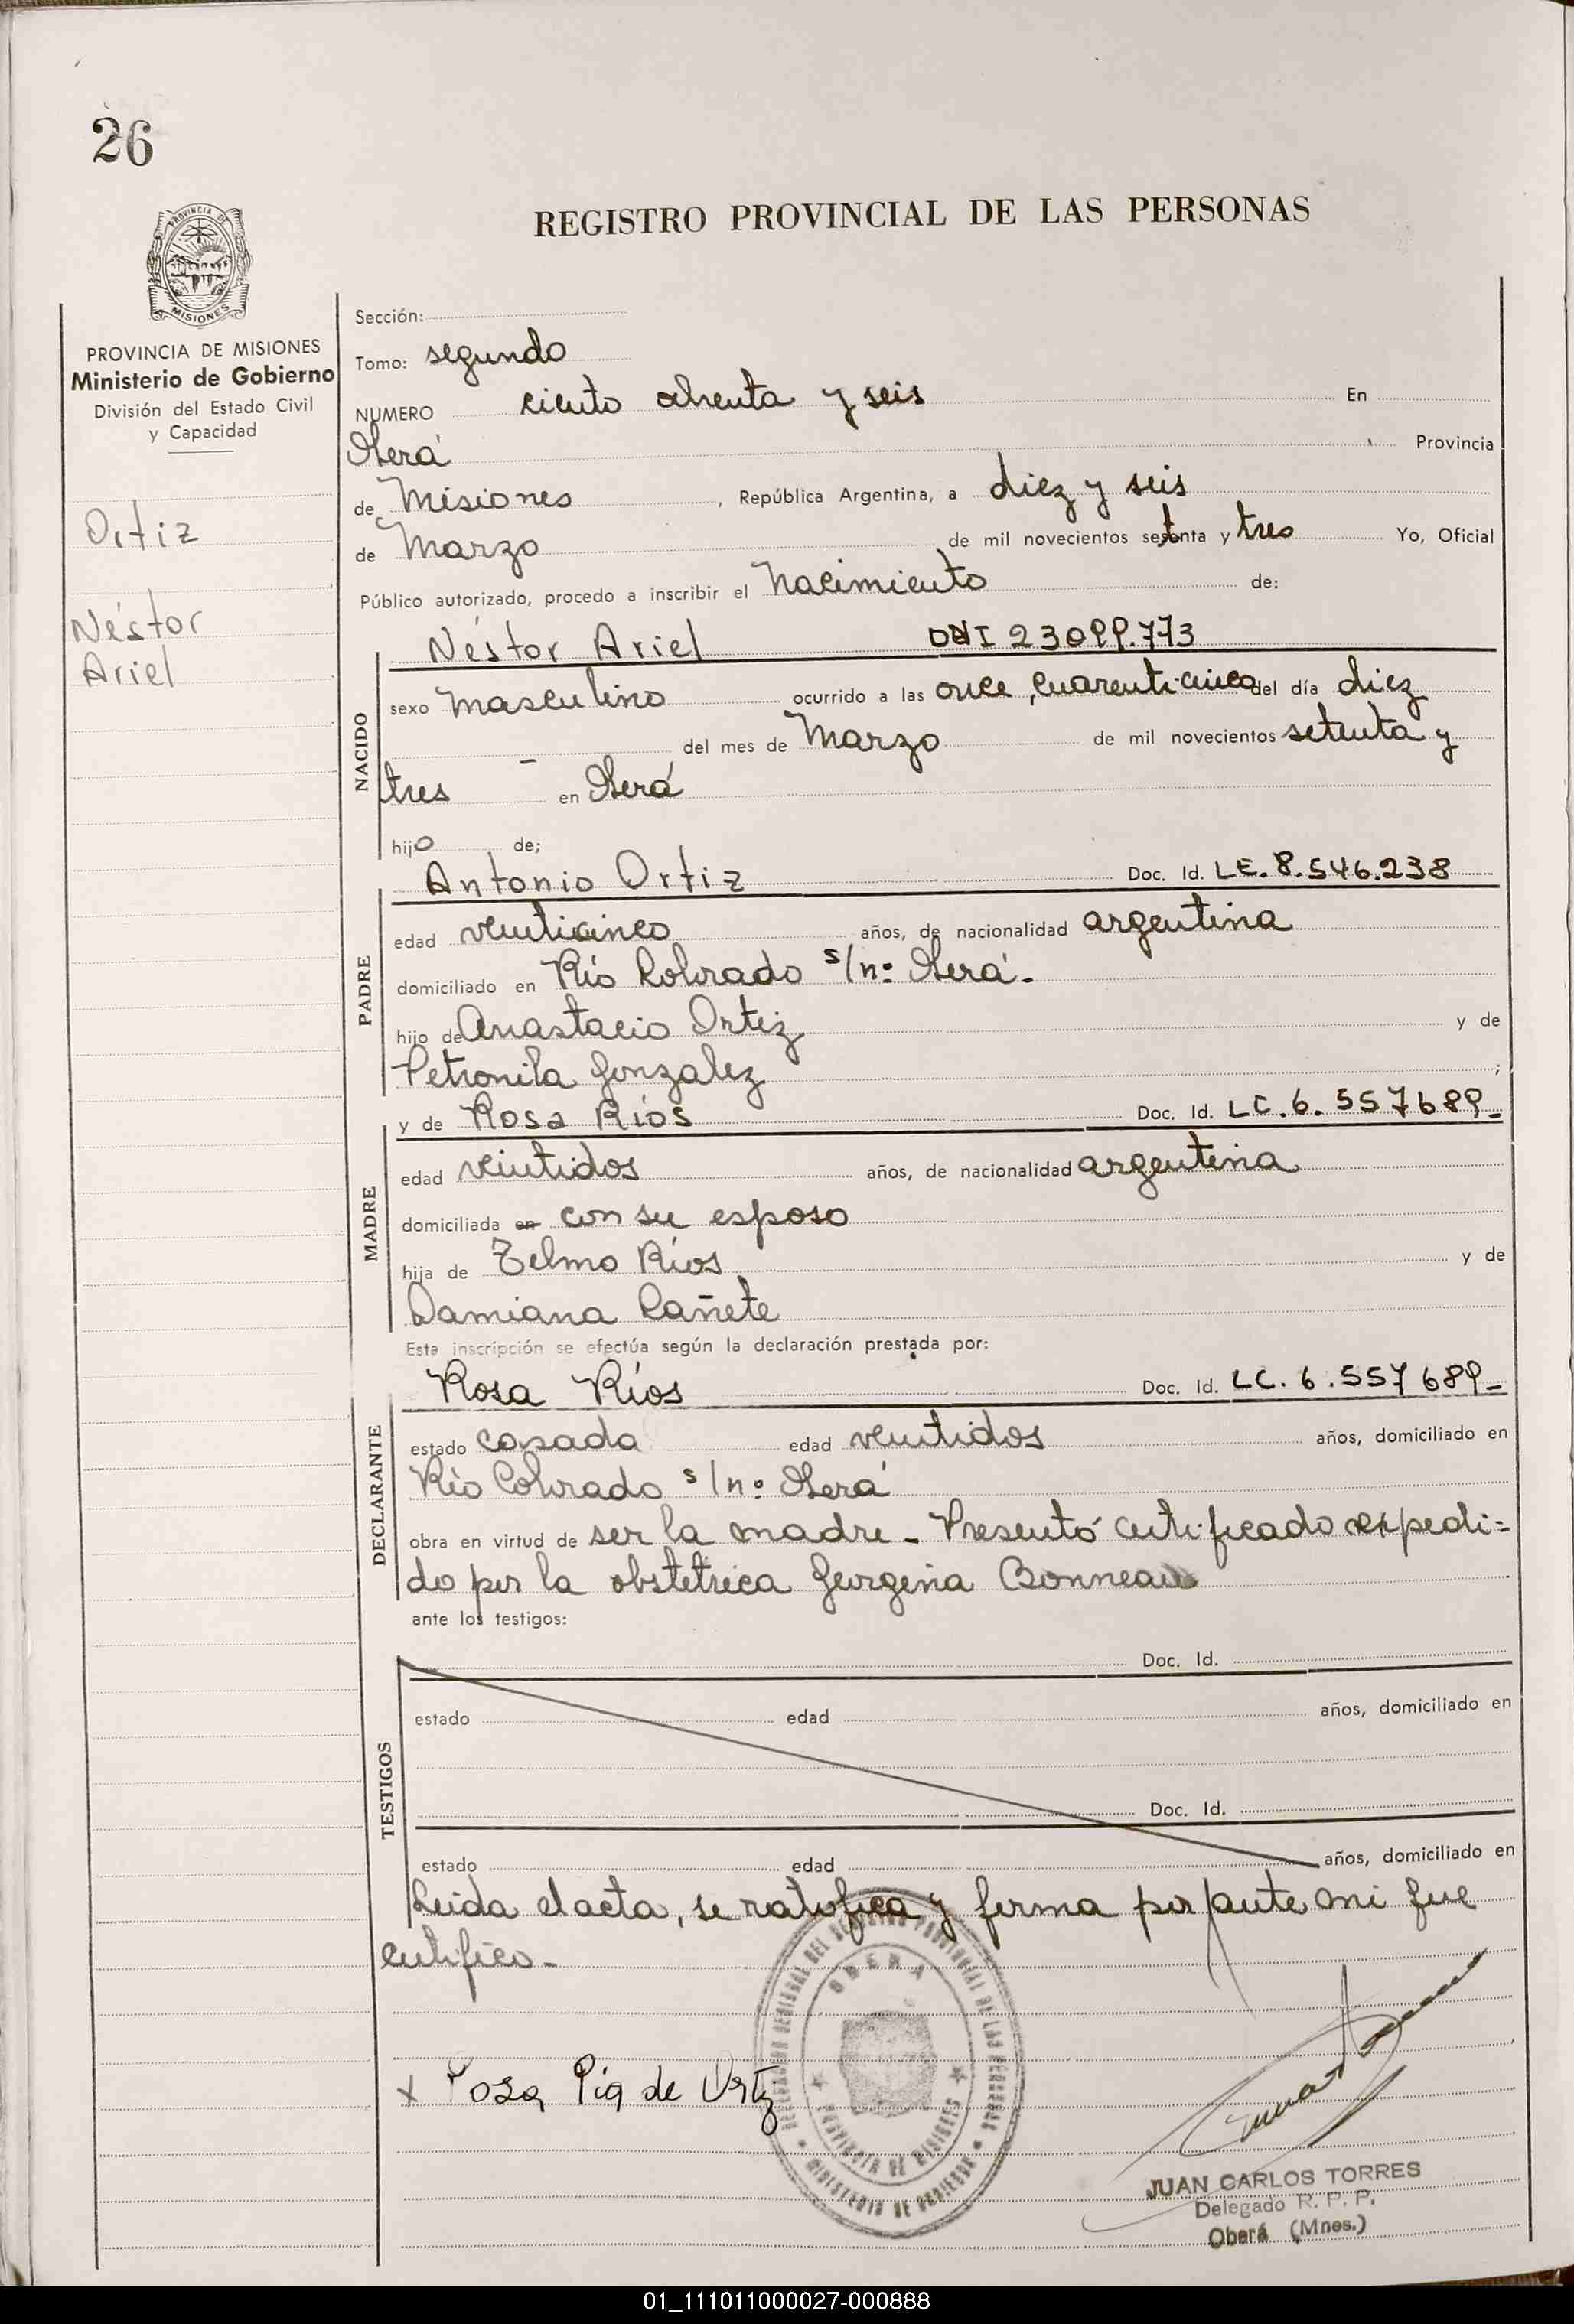 26
REGISTRO PROVINCIAL DE LAS PERSONAS
PROVINCIA DE MISIONES
Ministerio de Gobierno
División del Estado Civil
y Capacidad
Ortiz
Néstor
Ariel
Sección:
Tomo: segundo
NUMERO ciento ochenta y seis En
Oberá Provincia
de Misiones, República Argentina, a diez y seis
de Marzo de mil novecientos setenta y tres Yo, Oficial
Público autorizado, procedo a inscribir el Nacimiento de:
NACIDO
Néstor Ariel DNI 23099.773
sexo masculino ocurrido a las once, cuarenticinco del día diez
del mes de Marzo de mil novecientos setenta y
tres - en Oberá
hijo de;
PADRE
Antonio Ortiz Doc. Id. LE. 8.546.238
edad veinticinco años, de nacionalidad argentina
domiciliado en Río Colorado s/nº Oberá.
hijo de Anastacio Ortiz y de
Petronila Gonzalez ;
MADRE
y de Rosa Ríos Doc. Id. LC. 6. 557689_
edad veintidos años, de nacionalidad argentina
domiciliada en con su esposo
hija de Telmo Ríos y de
Damiana Cañete
Esta inscripción se efectúa según la declaración prestada por:
DECLARANTE
Rosa Ríos Doc. Id. LC. 6. 557689_
estado casada edad veintidos años, domiciliado en
Río Colorado s/nº Oberá
obra en virtud de ser la madre_ Presentó certificado expedi=
do por la obstetrica Georgina Bonneau
ante los testigos:
TESTIGOS
Doc. Id.
estado edad años, domiciliado en
Doc. Id.
estado edad años, domiciliado en
Leida el acta, se ratifica y firma por ante mi que
certifico_
x Rosa Ría de Ortiz
OBERA
PROVINCIA DE MISIONES
MINISTERIO DE GOBIERNO
JUAN CARLOS TORRES
Delegado R. P. P.
Oberá (Mnes.)
01_111011000027-000888